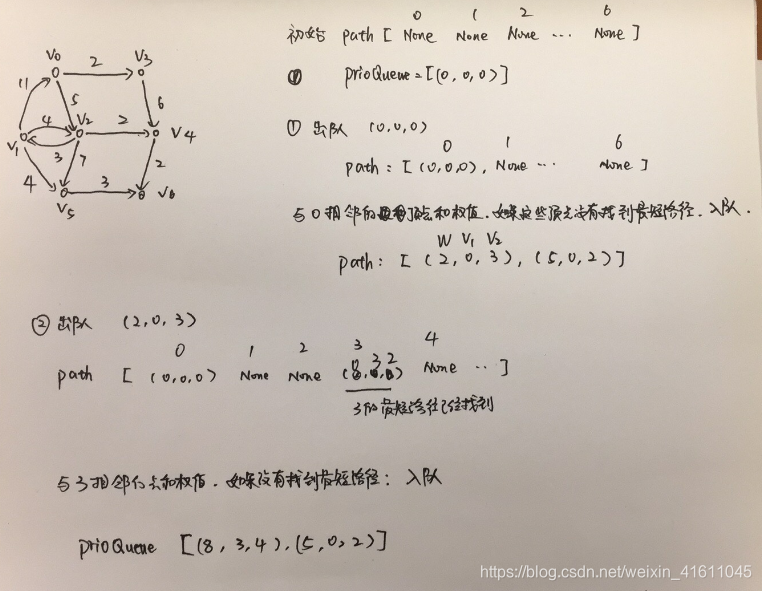 0 1 2 6
初始 path [ None None None ... None ]
⓪ prioQueue=[(0,0,0)]
① 出队 (0,0,0)
0 1 6
path: [(0,0,0), None ... None ]
与0相邻的顶点和权值.如果这些顶点没有找到最短路径,入队.
W V₁ V₂
path: [ (2,0,3), (5,0,2)]
② 出队 (2,0,3)
0 1 2 3 4
path [ (0,0,0) None None None .. ]
3的最短路径已经找到
与3相邻的点和权值.如果没有找到最短路径: 入队
prioQueue [(8,3,4),(5,0,2)]
V₀ 2 V₃
11 5 6
4 V₂ 2 V₄
V₁ 3 7 2
4 3 V₆
V₅
https://blog.csdn.net/weixin_41611045